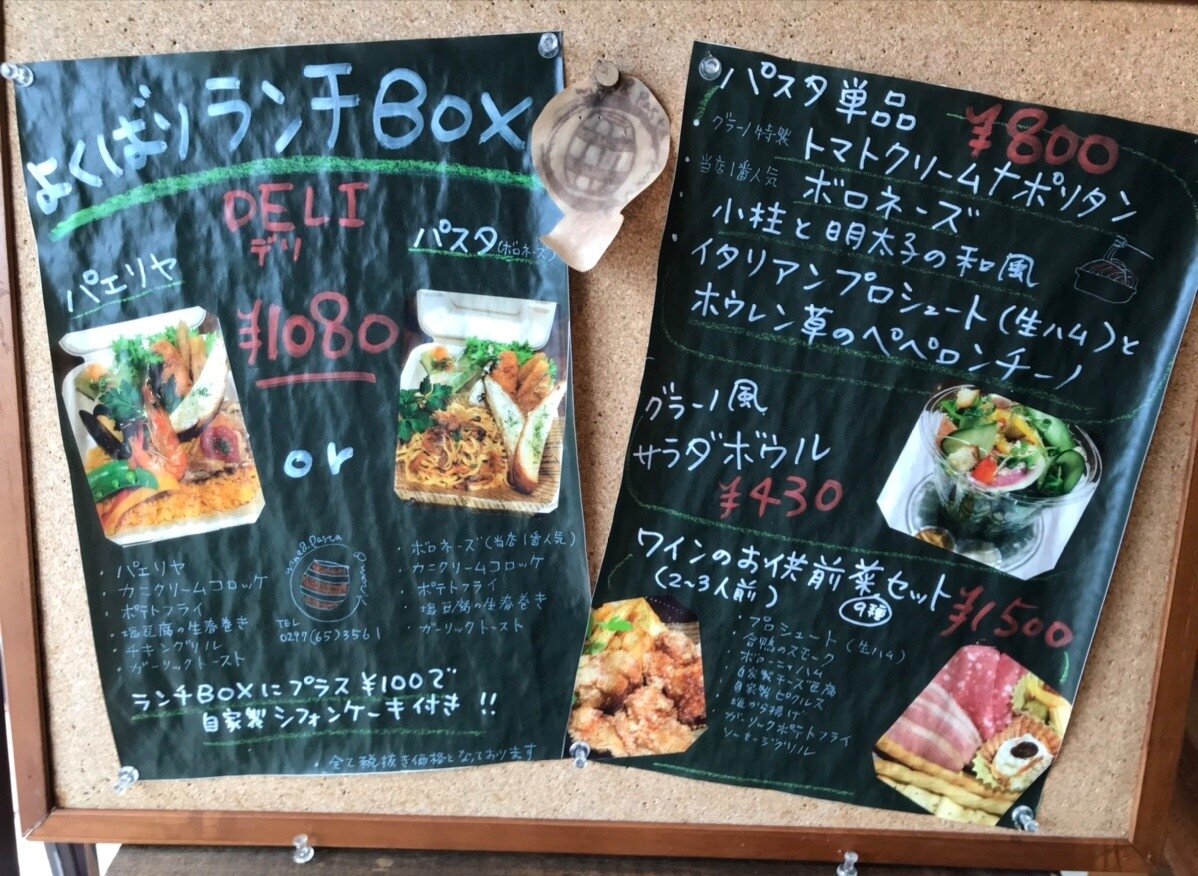 よくばりランチBOX
DELI
デリ
パエリヤ
パスタ(ボロネーズ)
¥1080
or
・パエリヤ
・カニクリームコロッケ
・ポテトフライ
・塩豆腐の生春巻き
・チキングリル
・ガーリックトースト
Wine&Pasta
TEL
0297(65)3561
・ボロネーズ(当店1番人気)
・カニクリームコロッケ
・ポテトフライ
・塩豆腐の生春巻き
・ガーリックトースト
ランチBOXにプラス¥100で
自家製シフォンケーキ付き!!
・全て税抜き価格となっております
パスタ単品 ¥800
・グラーノ特製 トマトクリームナポリタン
・当店1番人気 ボロネーズ
・小柱と明太子の和風
・イタリアンプロシュート(生ハム)と
ホウレン草のペペロンチーノ
グラーノ風
サラダボウル
¥430
ワインのお供前菜セット
(2~3人前) 9種 ¥1500
・プロシュート(生ハム)
・合鴨のスモーク
・ボローニャハム
・自家製チーズ豆腐
・自家製ピクルス
・唐から揚げ
・ガーリックポテトフライ
・ソーセージグリル